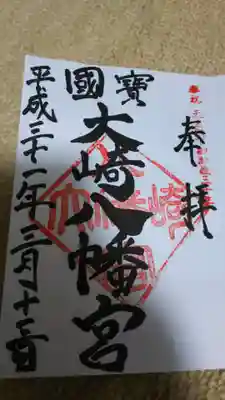 奉拝
國寶
大崎八幡宮
平成三十一年三月十三日